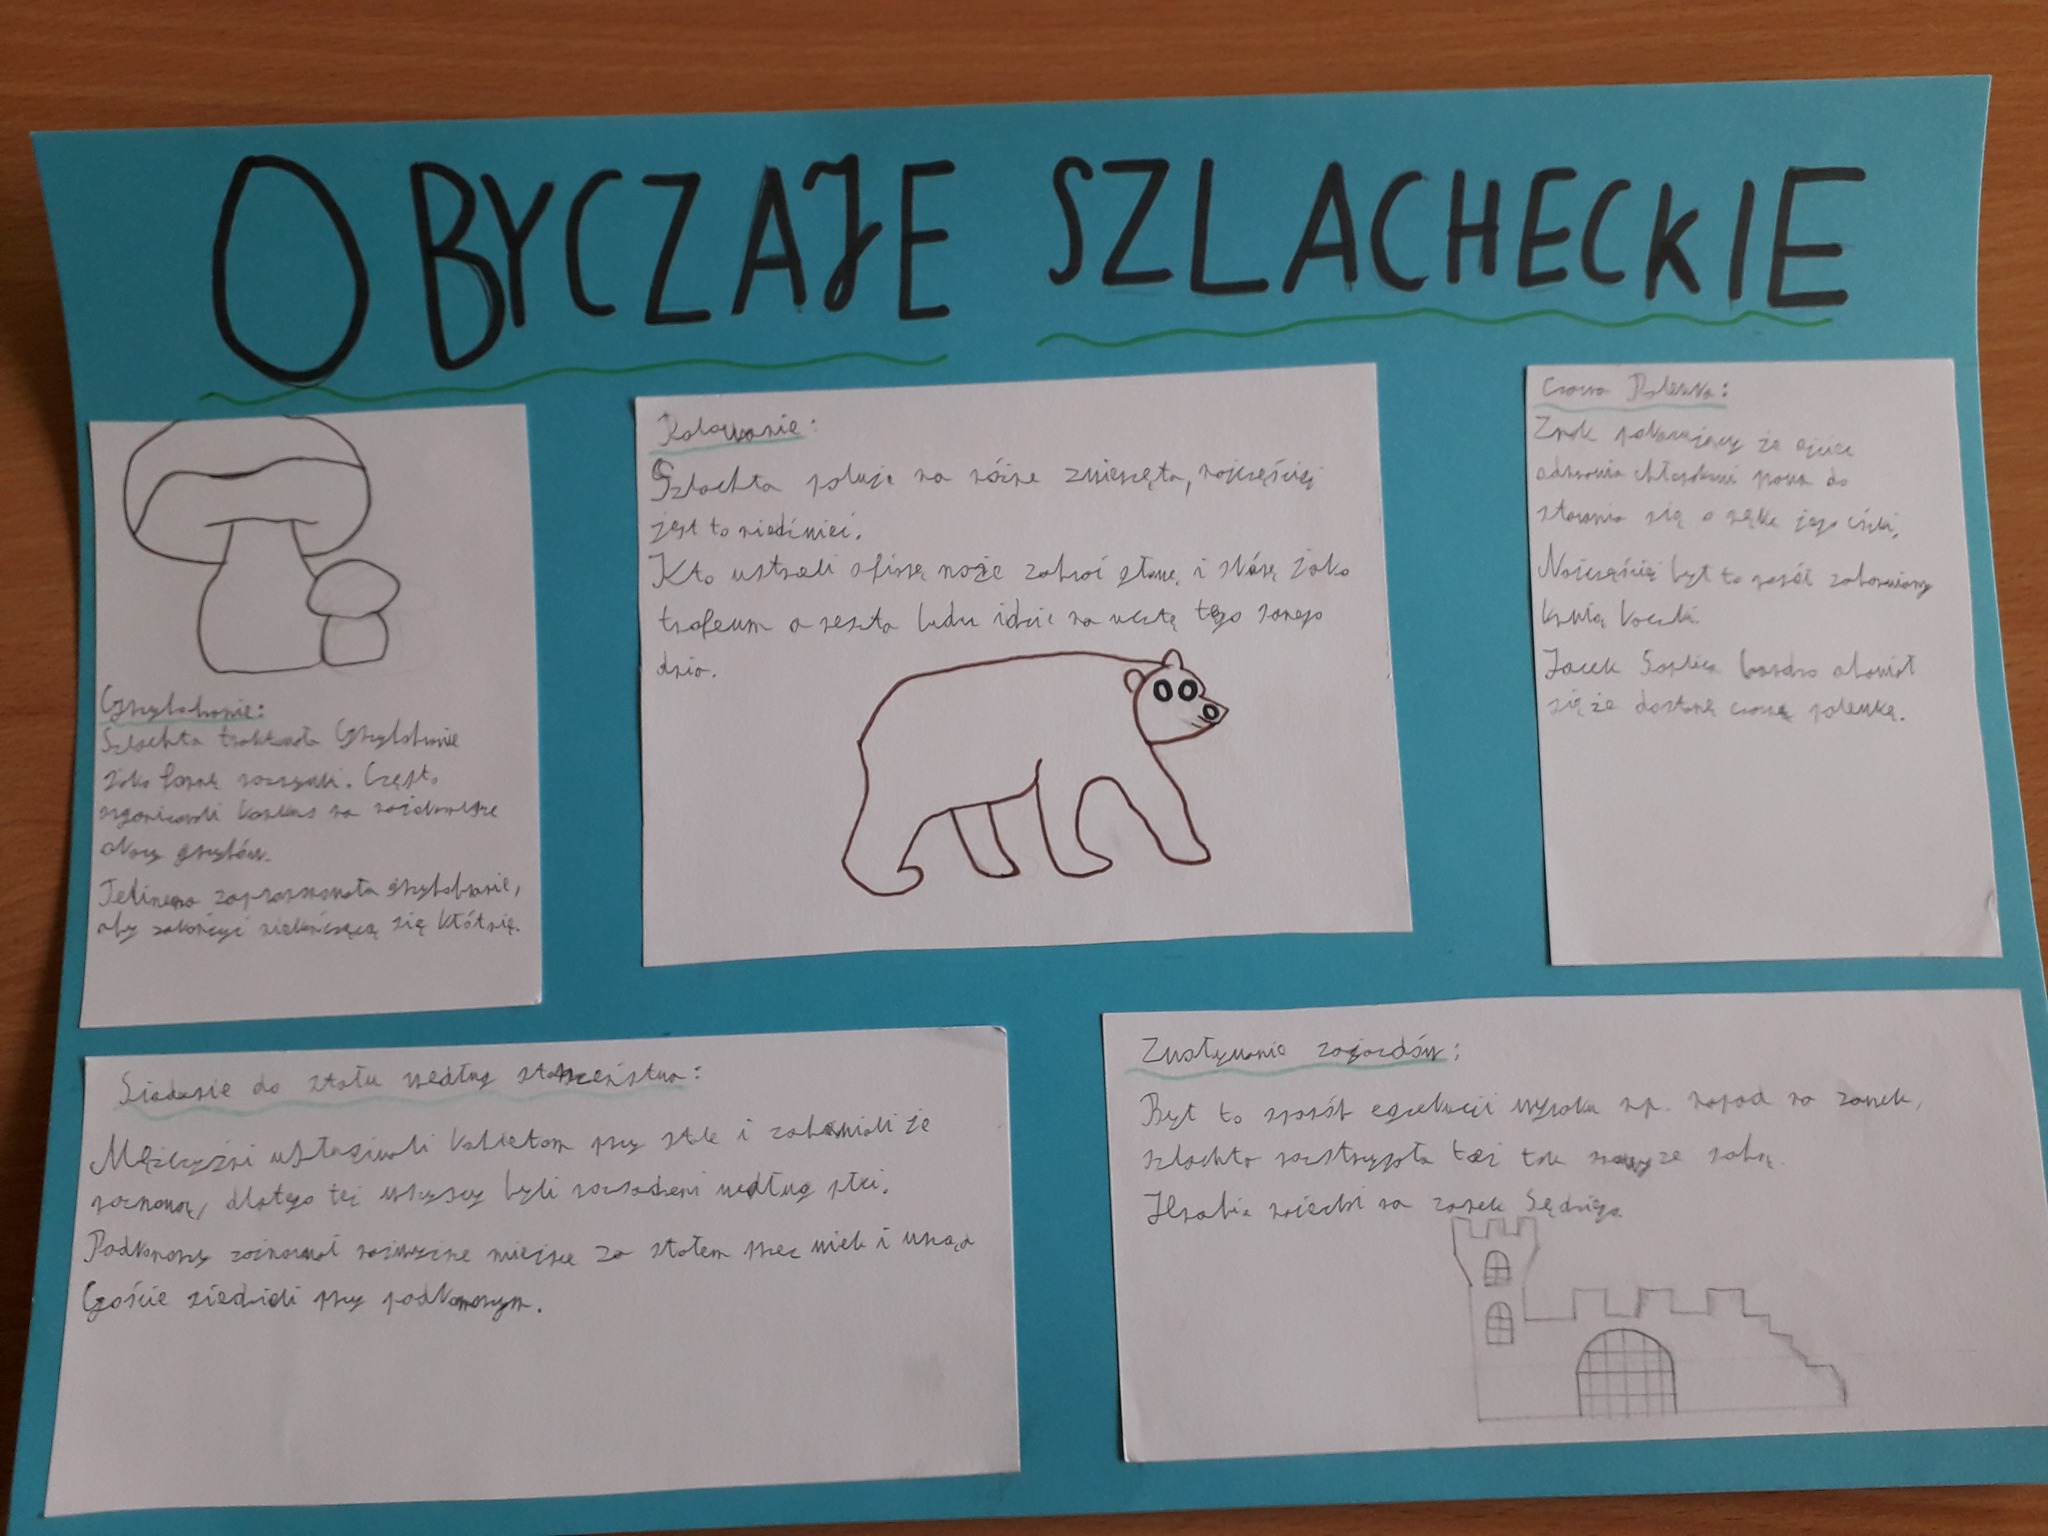 OBYCZAJE SZLACHECKIE
Grzybobranie:
Szlachta traktowała Grzybobranie
jako formę rozrywki. Często
organizowali konkurs na
okazy grzybów.
Telimena zaproponowała grzybobranie,
aby zakończyć niekończącą się kłótnię.
Polowanie:
Szlachta poluje na różne zwierzęta, najczęściej
jest to niedźwieć.
Kto ustrzeli ofiarę może zabrać głowę i skórę jako
trofeum a reszta ludu idzie na ucztę tego samego
dnia.
Czarna Polewka:
Znak pokazujący że ojciec
odmawia chłopakowi prawa do
starania się o rękę jego córki,
Najczęściej był to rosół zabarwiony
krwią kaczki.
Jacek Soplica bardzo obawiał
się że dostanę czarną polewkę.
Siadanie do stołu według starszeństwa:
Mężczyźni usługiwali kobietom przy stole i zabawiali je
rozmową, dlatego też wszyscy byli rozsadzeni według płci.
Podkomorzy zajmował najwyższe miejsce za stołem przez wiek i urząd
Goście siedzieli przy podkomorzym.
Zwoływanie zajazdów:
Był to sposób egzekucji wyroku np. napad na zamek,
szlachta rozstrzygała też tak spory ze sobą.
Hrabia najechał na zamek Sędziego